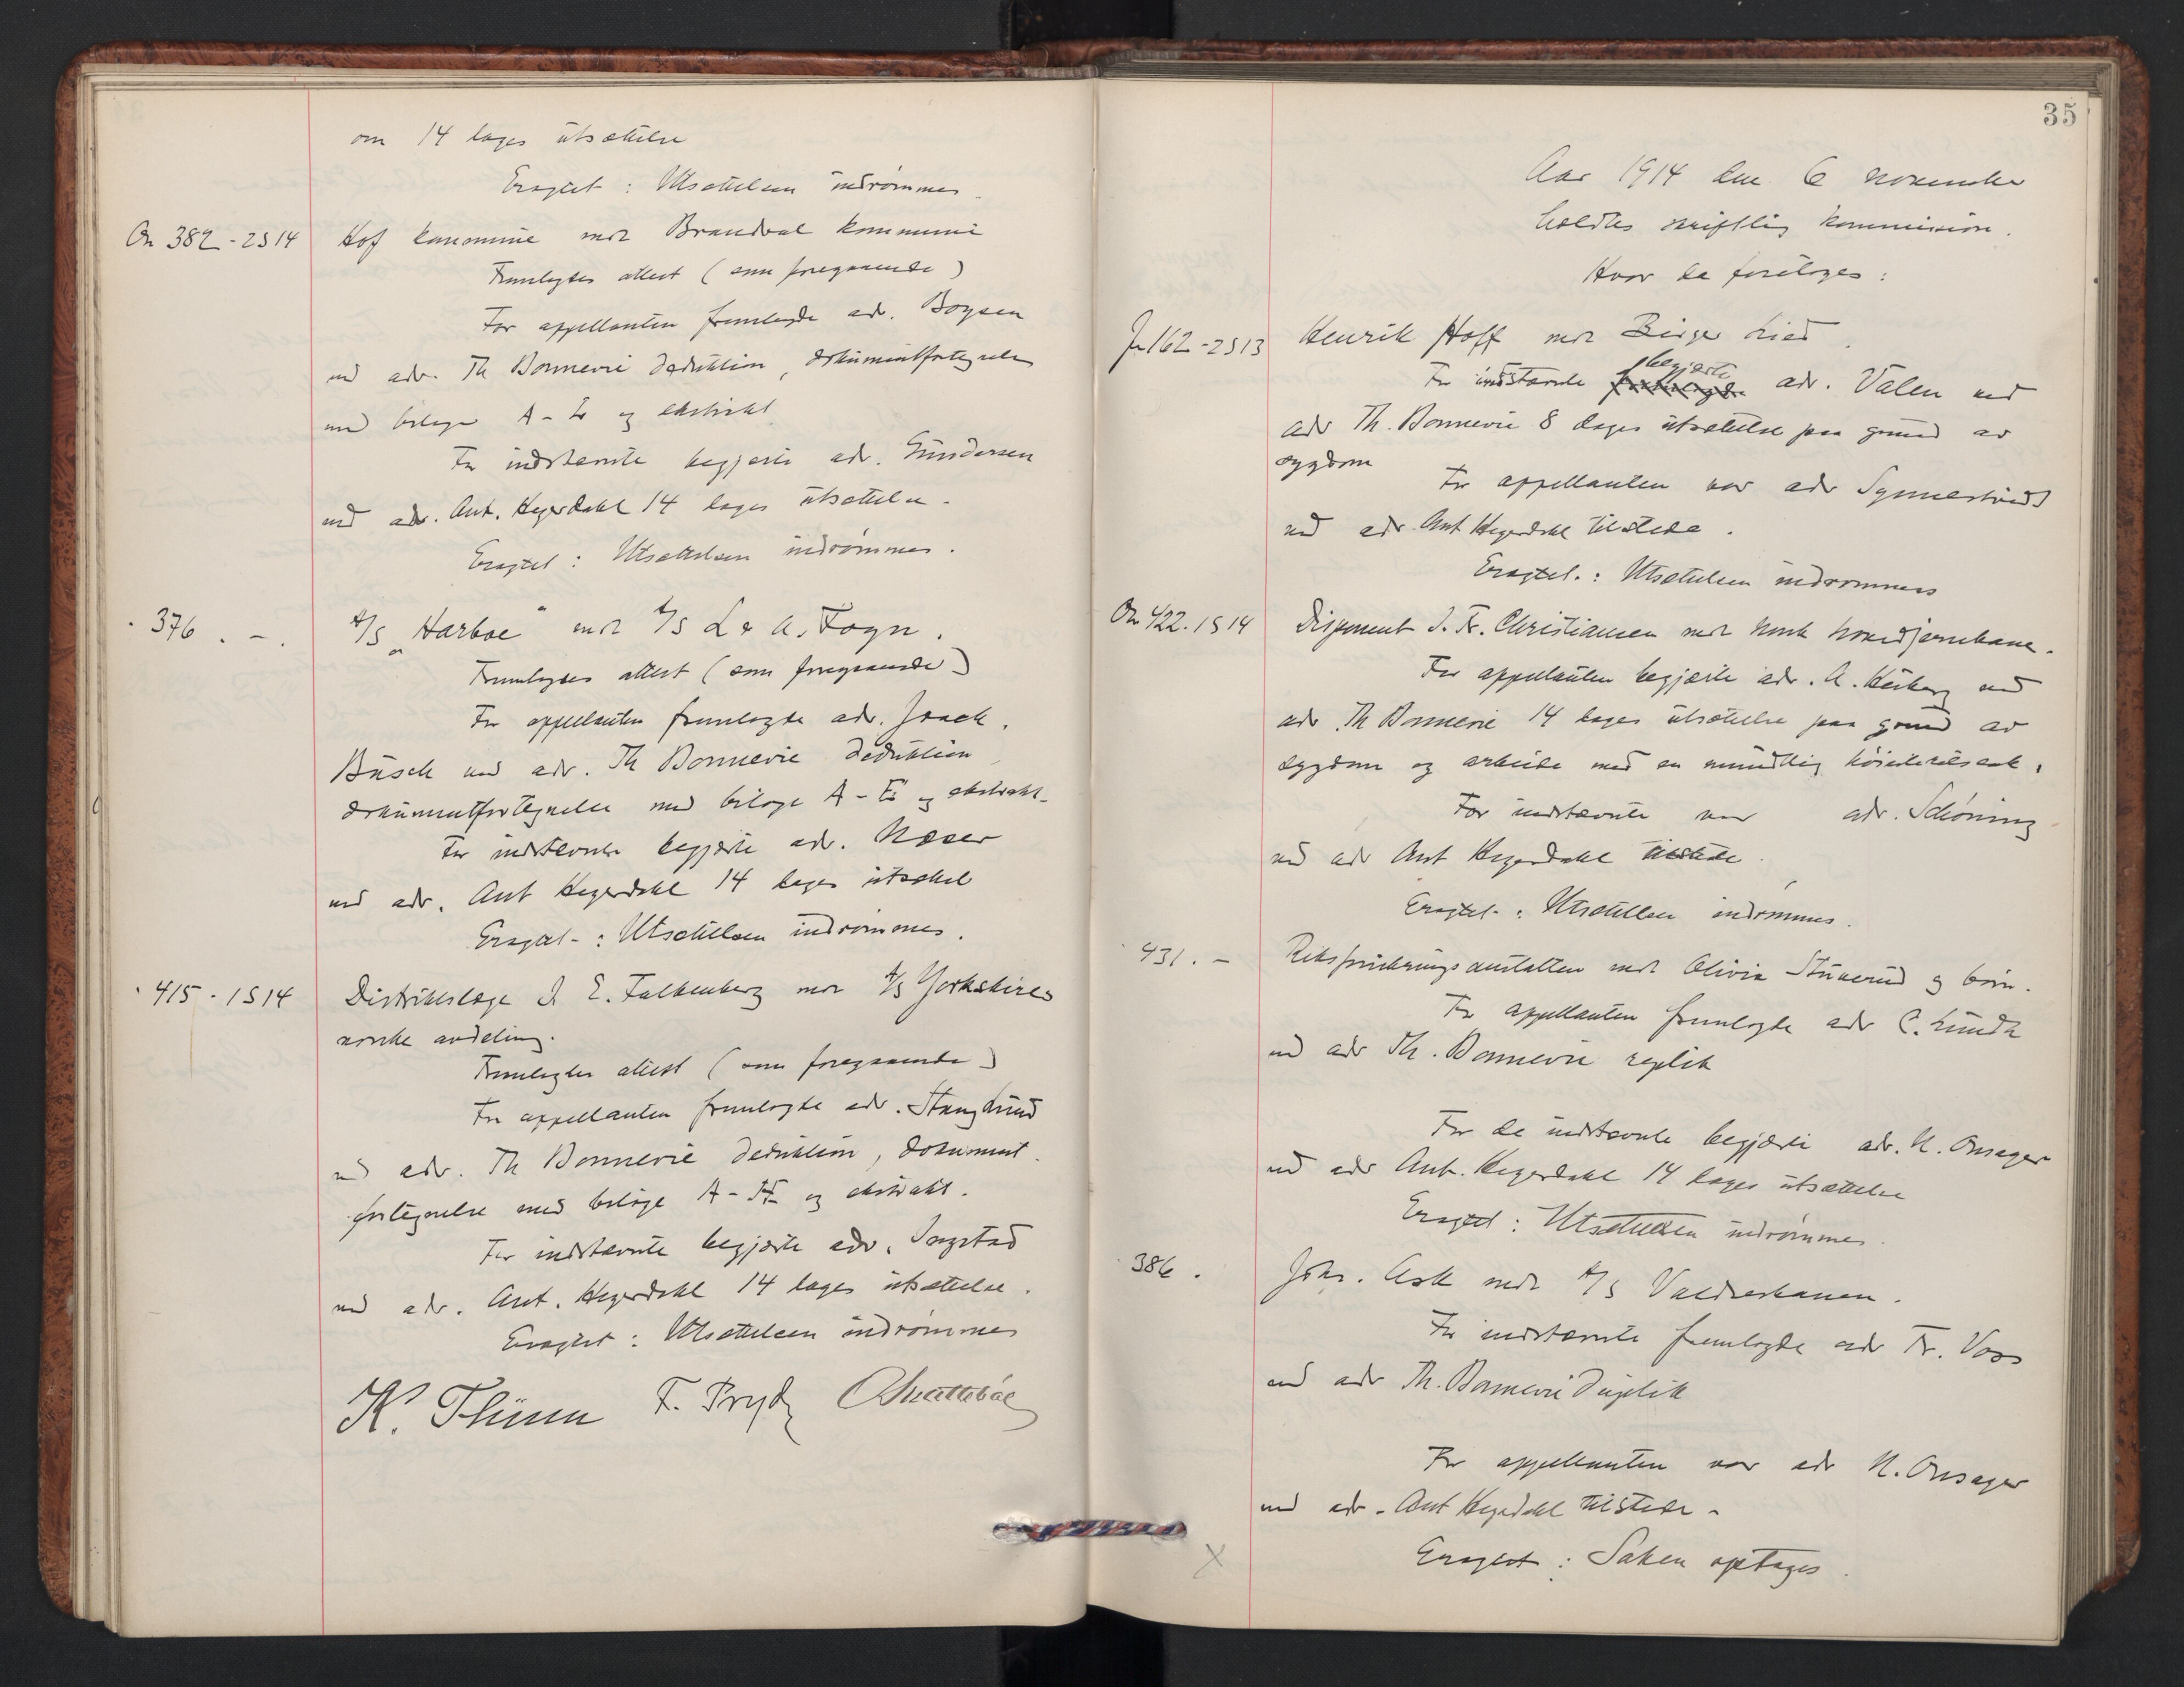 om 14 dages utsættelse
Eragtet: Utsættelsen indrømmes.
On 382-2S14 Hof kommune mot Brandval kommune
Fremlagdes attest (som foregaaende)
For appellanten fremlagde adv. Boysen
ved adv. Th Bonnevie deduktion, dokumentfortegnelse
med bilage A- og ekstrakt
For indstevnte begjærte adv. Gundersen
ved adv. Ant. Hegerdahl 14 dages utsættelse.
Eragtet: Utsættelsen indrømmes.
" 376. -. A/S "Harboe" mot A/S L & A. Fogn.
Fremlagdes attest (som foregaaende)
For appellanten fremlagde adv. Joack.
Busch ved adv. Th Bonnevie deduktion
dokumentfortegnelse med bilage A-E og ekstrakt.
For indstevnte begjærte adv. Næser
ved adv. Ant Hegerdahl 14 dages utsættel
Eragtet-: Utsættelsen indrømmes.
" 415.1S14 Distriktslæge J. E. Falkenberg mot A/S Yorkshires
norske avdeling.
Fremlagdes attest (som foregaaende)
For appellanten fremlagde adv. Stang Lund
ved adv. Th Bonnevie deduktion, dokument
fortegnelse med bilage A- og ekstrakt.
For indstevnte begjærte adv. Ingstad
ved adv. Ant. Hegerdahl 14 dages utsættelse.
Eragtet: Utsættelsen indrømmes
K. Thunn F. Pryd
35
Aar 1914 den 6 november
holdtes skriftlig kommission.
Hvor da foretoges:
Jn 162-2S13 Henrik Hoff mot Birger Lied.
For indstevnte begjærte adv. Valen ved
adv Th. Bonnevie 8 dages utsættelse paa grund av
sygdom
For appellanten var adv Synnestvedt
ved adv. Ant Hegerdahl tilstede.
Eragtet.: Utsættelsen indrømmes
On 422.1S14 Disponent J. Fr. Christiansen mot Norsk hovedjernbane.
For appellanten begjærte adv. A. Heiberg ved
adv. Th Bonnevie 14 dages utsættelse paa grund av
sygdom og arbeide med en mundtlig høiesteretssak.
For indstevnte var adv. Schøning
ved adv Ant Hegerdahl tilstede.
Eragtet-: Utsættelsen indrømmes.
" 431. - Riksforsikringsanstalten mot Olivia Stuverud og børn.
For appellanten fremlagde adv C. Lundh
ved adv Th. Bonnevie replik
For de indstevnte begjærte adv. N. Onsager
ved adv Ant. Hegerdahl 14 dages utsættelse
Eragtet: Utsættelsen indrømmes.
" 386. Johs. Ask mot A/S Valdresbanen.
For indstevnte fremlagde adv Fr. Voss
ved adv Th. Bonnevie duplik
For appellanten var adv N. Onsager
ved adv. Ant Hegerdahl tilstede.
X
Eragtet: Saken optages.